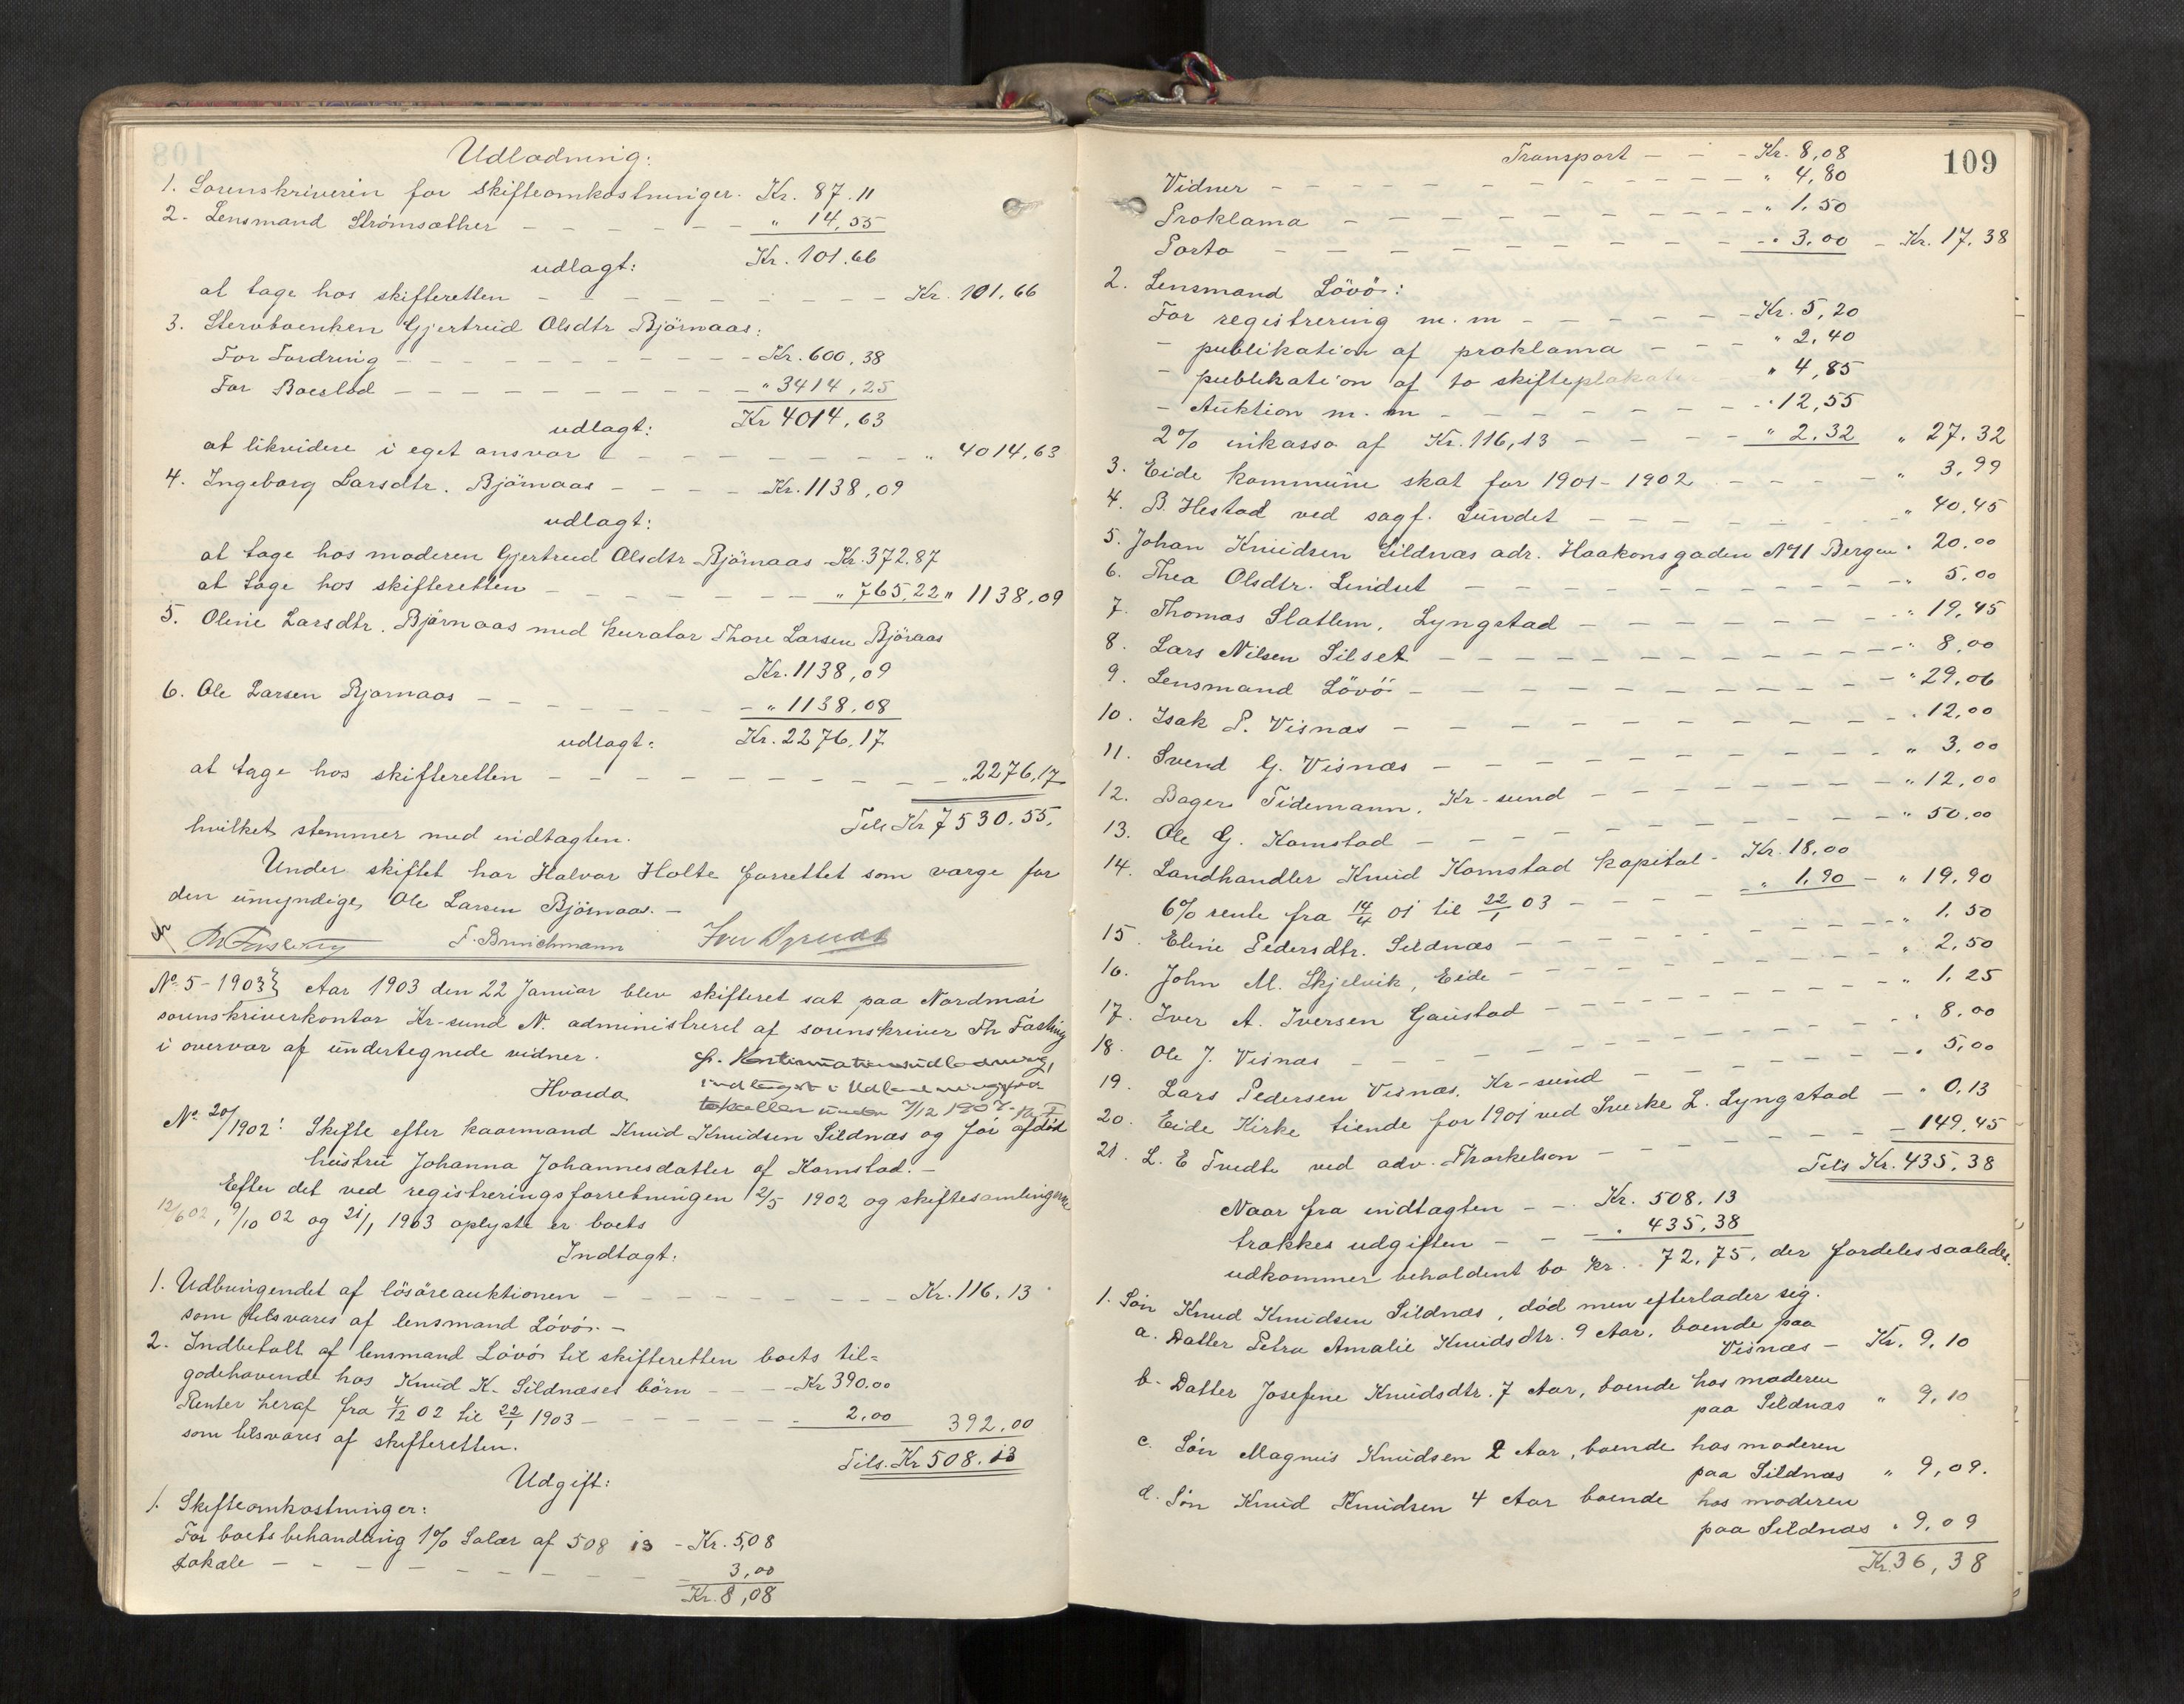 Udlodning:
1. Sorenskriveren for skifteomkostninger. Kr. 87.11
2. Lensmand Strømsæther - - - - - - " 14,55
Kr. 101.66
udlagt:
at tage hos skifteretten - - - - - - - - Kr. 101,66
3. Stervboenken Gjertrud Olsdtr Björnaas:
For Fordring - - - - - - - - - Kr. 600,38
For Boeslod - - - - - - - - - " 3414,25
udlagt: Kr 4014,63
at likvidere i eget ansvar - - - - - - - " 4014,63
4. Ingeborg Larsdtr. Björnaas - - - - Kr. 1138,09
udlagt:
at tage hos moderen Gjertrud Olsdtr Björnaas Kr. 372.87
at tage hos skifteretten - - - - - - " 765,22 " 1138,09
5. Oline Larsdtr. Björnaas med kurator Thore Larsen Björaas
Kr. 1138,09
6. Ole Larsen Bjørnaas - - - - - - - " 1138.08
udlagt: Kr. 2276,17
at tage hos skifteretten - - - - - - - - - " 2276,17
Tils Kr 7530.55,
hvilket stemmer med indtægten.
Under skiftet har Halvor Holte forrettet som værge for
den umyndige, Ole Larsen Björnaas. -
F. Brinichmann
No. 5 - 1903} Aar 1903 den 22 Januar blev skifteret sat paa Nordmör
sorenskriverkontor Kr-sund N. administreret af sorenskriver Th Fasting
i overvær af undertegnede vidner.
Hvorda
No. 20/1902: Skifte efter kaarmand Knud Knudsen Sildnæs og før afdød
hustru Johanna Johannesdatter af Kornstad. -
Efter det ved registreringsforretningen 12/5 1902 og skiftesamlingerne
12/6 02, 9/10 02 og 21/1 1903 oplyste er boets
Indtægt:
1. Udbringendet af lösöreauktionen - - - - - - - - - Kr. 116.13
som tilsvares af lensmand Lövö. -
2. Indbetalt af lensmand Lövö til skifteretten boets til=
godehavende hos Knud K. Sildnæses börn - - - Kr 390.00
Renter heraf fra 4/12 02 til 22/1 1903 - - - - - - 2,00 392,00
som tilsvares af skifteretten.
Tils. Kr 508.13
Udgift:
1. Skifteomkostninger:
For boets behandling 1% Salær af 508 13 - Kr. 5,08
Lokale - - - - - - - - 3,00
Kr. 8,08
109
Transport - - - Kr. 8,08
Vidner - - - - - - - - - - - " 4,80
Proklama - - - - - - - - - - " 1.50
Porto - - - - - - - - - " 3.00 - Kr. 17.38
2. Lensmand Lövö:
For registrering m.m - - - - - Kr. 5,20
- publikation af proklama - - - " 2,40
- publikation af to skifteplakater " 4,85
- Auktion m.m - - - - - - - " 12,55
2% inkasso af Kr. 116,13 - - - - " 2.32 " 27.32
3. Eide kommune skat for 1901-1902 - - - - " 3,99
4. B. Hestad ved sagf. Sundet - - - - - - " 40,45
5. Johan Knudsen Sildnæs adr. Haakonsgaden No 11 Bergen " 20.00
6. Thea Olsdtr. Lindset - - - - - - - - " 5.00
7. Thomas Slatlem, Lyngstad - - - - - - - " 19,45
8. Lars Nilsen Silset - - - - - - - - - " 8,00
9. Lensmand Lövö - - - - - - - - - " 29,06
10. Isak P. Visnæs - - - - - - - - - " 12,00
11. Svend G. Visnæs - - - - - - - - - " 3.00
12. Bager Tidemann, Kr-sund - - - - - - " 12,00
13. Ole G. Kornstad - - - - - - - - " 50.00
14. Landhandler Knud Kornstad kapital - Kr. 18,00
6% rente fra 14/4 01 til 22/1 03 - - - - " 1.90 - " 19,90
15. Eline Pedersdtr. Sildnæs - - - - - - - " 1.50
16. John M. Skjelvik, Eide - - - - - - - " 2.50
17. Iver A. Iversen Gaustad - - - - - - - " 1,25
18. Ole J. Visnæs - - - - - - - - - " 8.00
19. Lars Pedersen Visnæs, Kr-sund - - - - - " 5,00
20. Eide Kirke tiende for 1901 ved Sverke L. Lyngstad - " 0,13
21. L. E Tvedte ved adv. Thorkelson - - - - - 149.45
Tils Kr. 435,38
Naar fra indtægten - - Kr. 508.13
trækkes udgiften - - - " 435,38
udkommer beholdent bo kr. 72,75, der fordeles saaledes.
1. Søn Knud Knudsen Sildnæs, død men efterlader sig.
a. Datter Petra Amalie Knudsdtr. 9 Aar, boende paa
Visnæs - Kr. 9,10
b. Datter Josefine Knudsdtr. 7 Aar, boende hos moderen
paa Sildnæs " 9,10
c. Søn Magnus Knudsen 2 Aar, boende hos moderen
paa Sildnæs " 9,09.
d. Søn Knud Knudsen 4 Aar boende hos moderen
paa Sildnæs " 9,09
Kr. 36,38